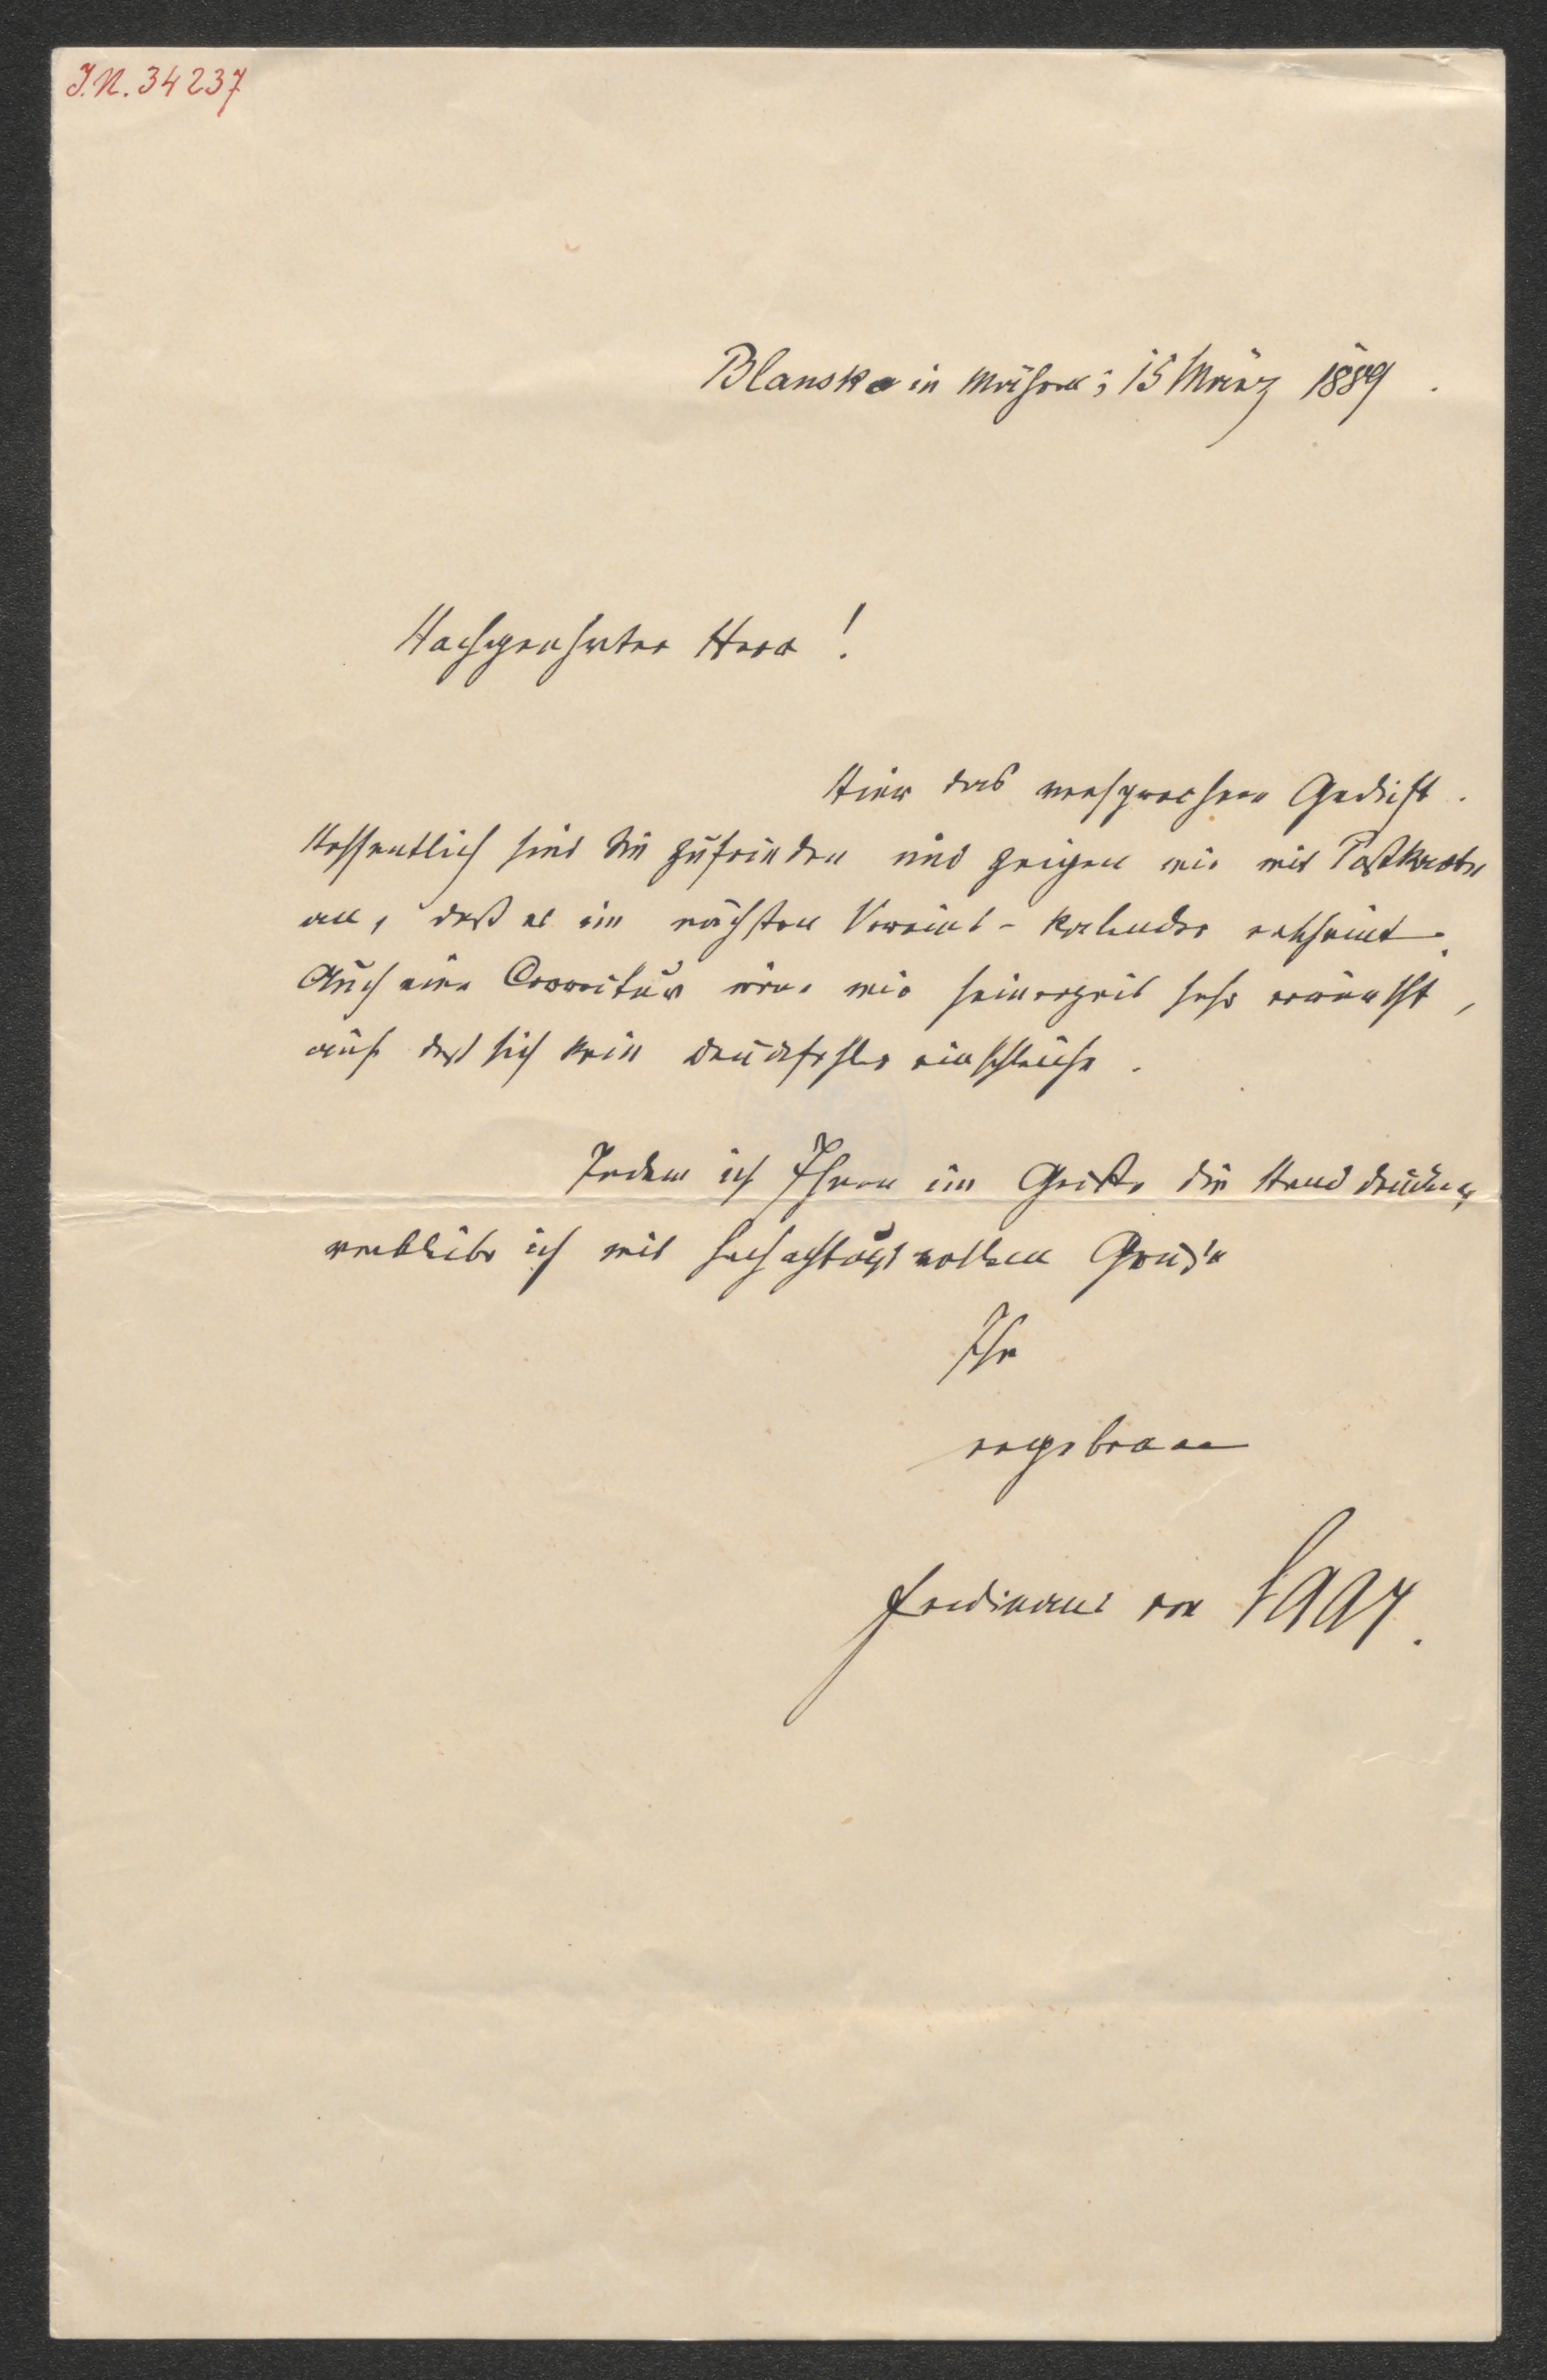 J.N. 34237
Blansko in Mähren; 15 März 1889.
Hochgeehrter Herr!
Hier das versprochene Gedicht.
Hoffentlich sind Sie zufrieden und zeigen mir mit Postkarte
an, daß es im nächsten Vereins-Kalender erscheint.
Auch eine Correctur wäre mir seinerzeit sehr erwünscht,
auf daß sich kein Druckfehler einschleiche.
Indem ich Ihnen im Geiste die Hand drücke,
verbleibe ich mit hochachtungsvollem Gruße
Ihr
ergebener
Ferdinand von Saar.